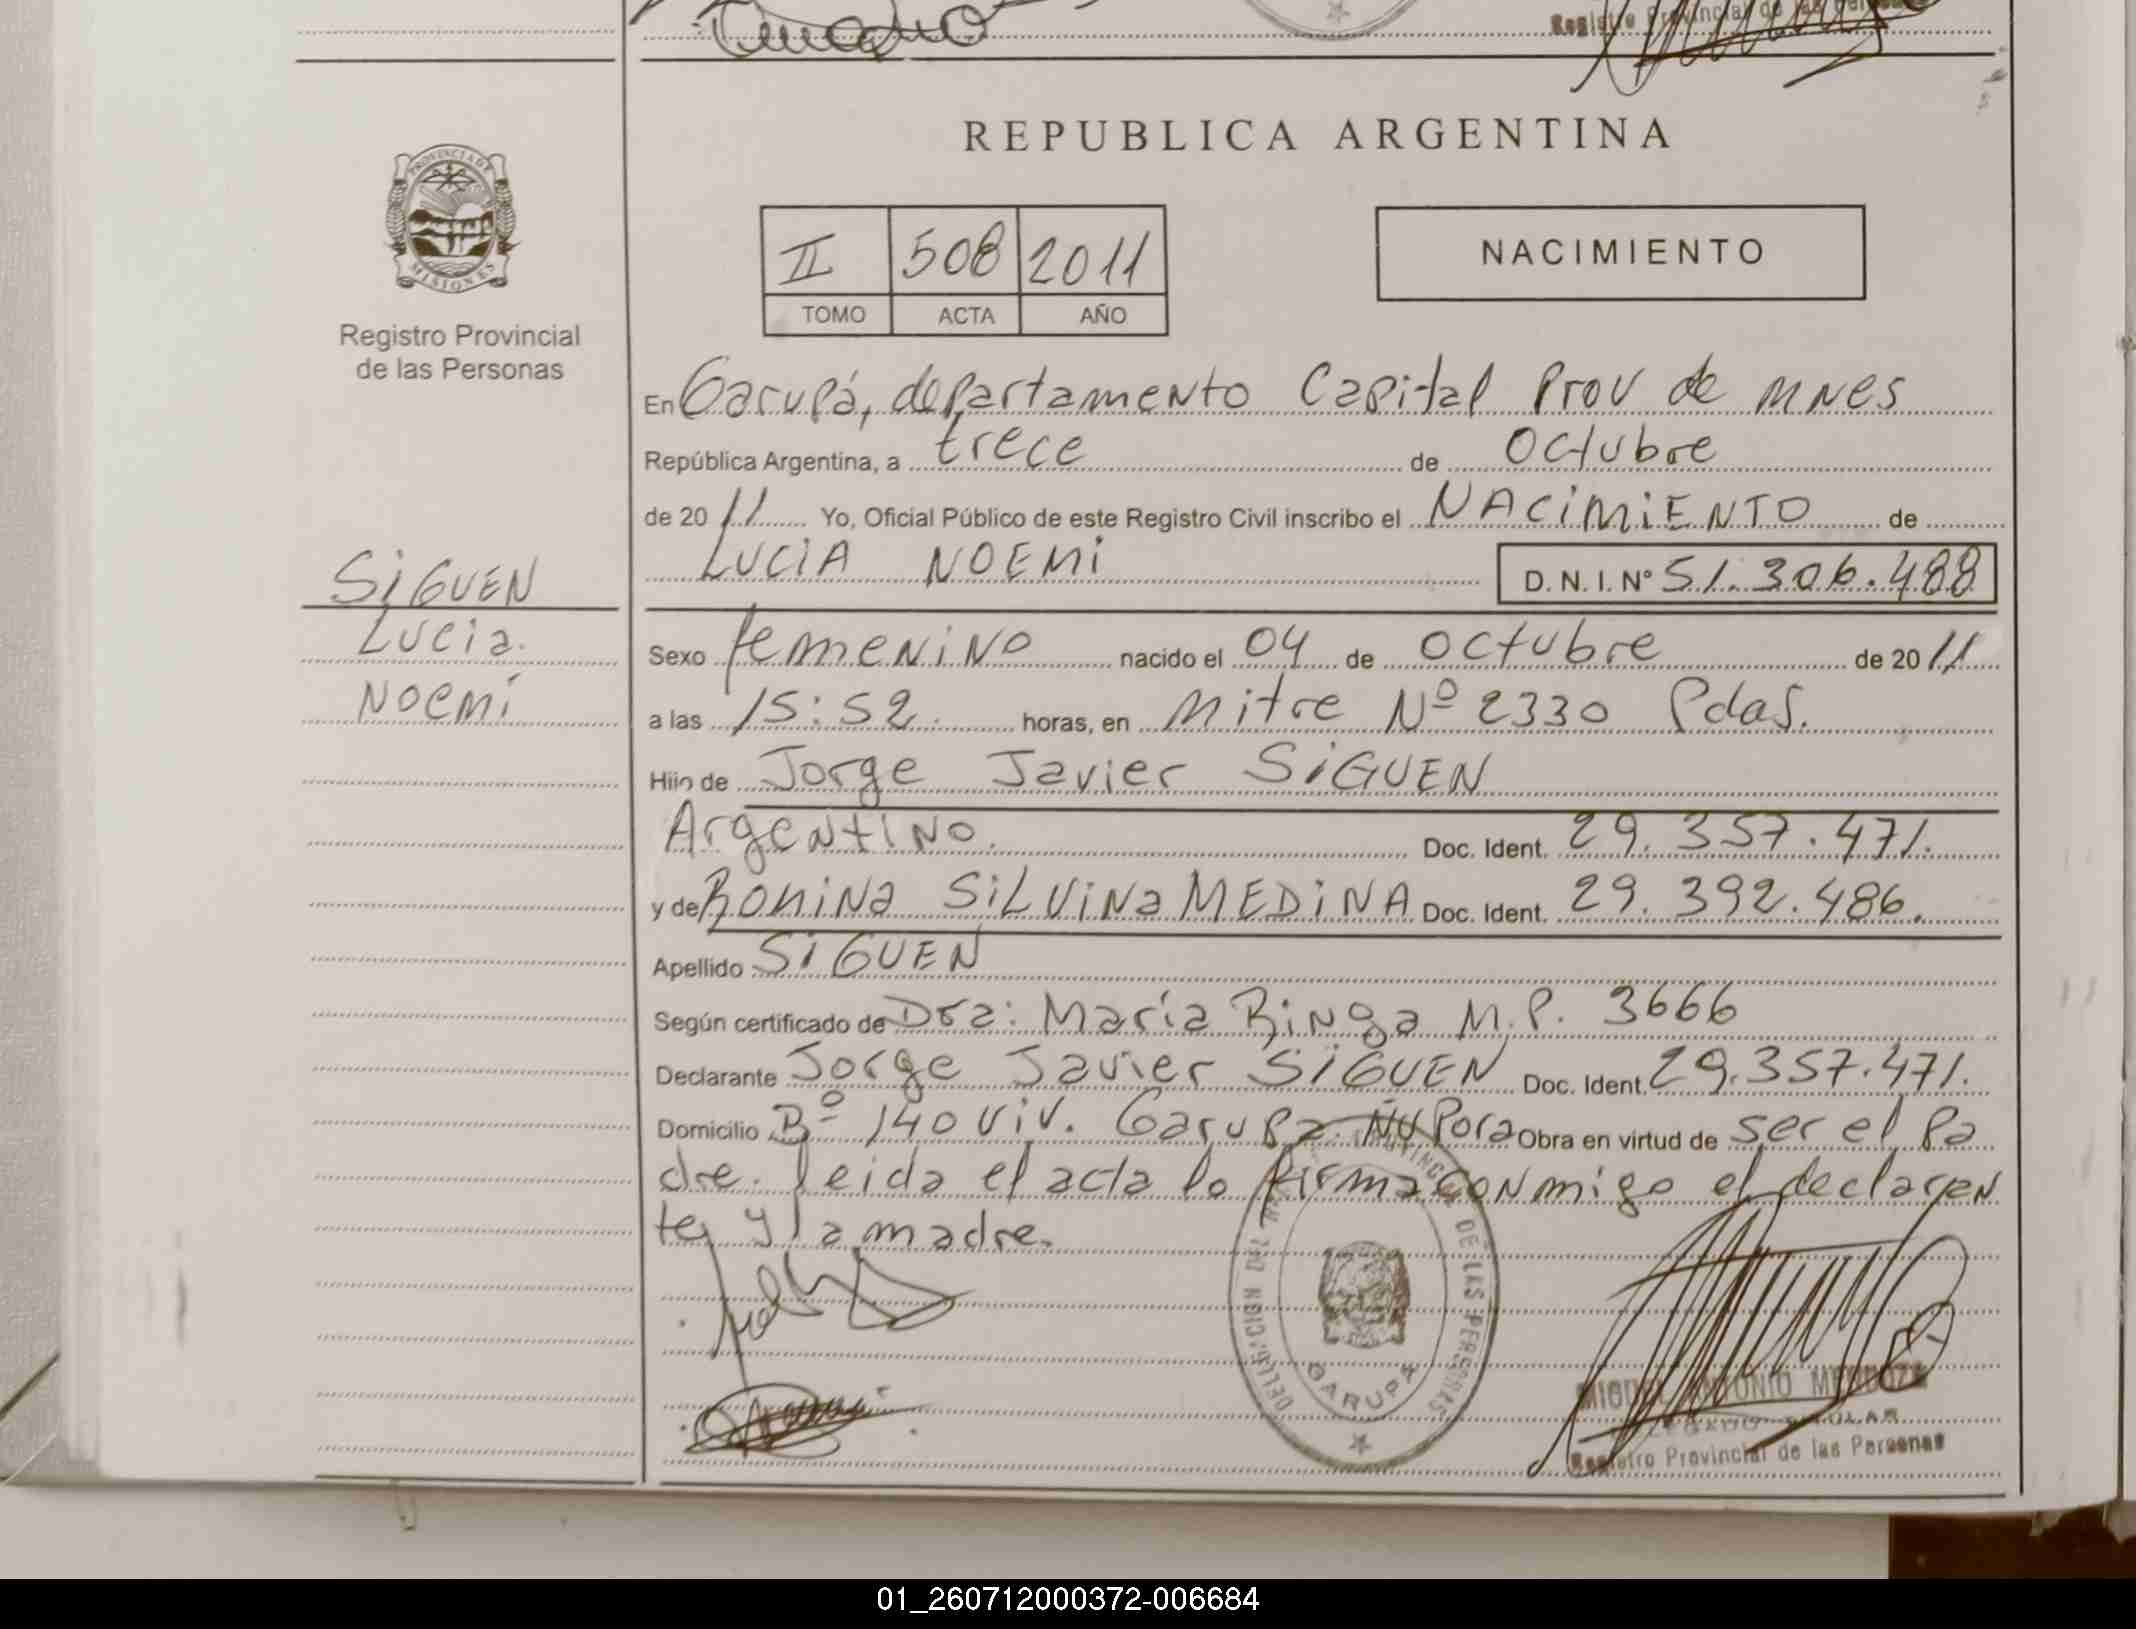 Registro Provincial de las Personas
REPUBLICA ARGENTINA
PROVINCIA DE
MISIONES
Registro Provincial
de las Personas
II 508 2011
TOMO ACTA AÑO
NACIMIENTO
En Garupá, departamento Capital Prov de MNES
República Argentina, a trece de Octubre
de 20 11 Yo, Oficial Público de este Registro Civil inscribo el NACIMIENTO de
LUCIA NOEMI D. N. I. Nº 51.306.488
SIGUEN
Lucia.
NOEMÍ
Sexo femenino nacido el 04 de Octubre de 20 11
a las 15:52. horas, en Mitre Nº 2330 Pdas.
Hijo de Jorge Javier SIGUEN
Argentino. Doc. Ident. 29.357.471.
y de Romina SILVINA MEDINA Doc. Ident. 29.392.486.
Apellido SIGUEN
Según certificado de Dra: María Ringa M.P. 3666
Declarante Jorge Javier SIGUEN Doc. Ident. 29.357.471.
Domicilio Bº 140 viv. Garupa Ñu Pora Obra en virtud de ser el pa
dre. leida el acta lo firma conmigo el declaran
te y la madre.
DELEGACION DEL REGISTRO PROVINCIAL DE LAS PERSONAS
GARUPA
MIGUEL ANTONIO MENDOZA
DELEGADO TITULAR
Registro Provincial de las Personas
01_260712000372-006684